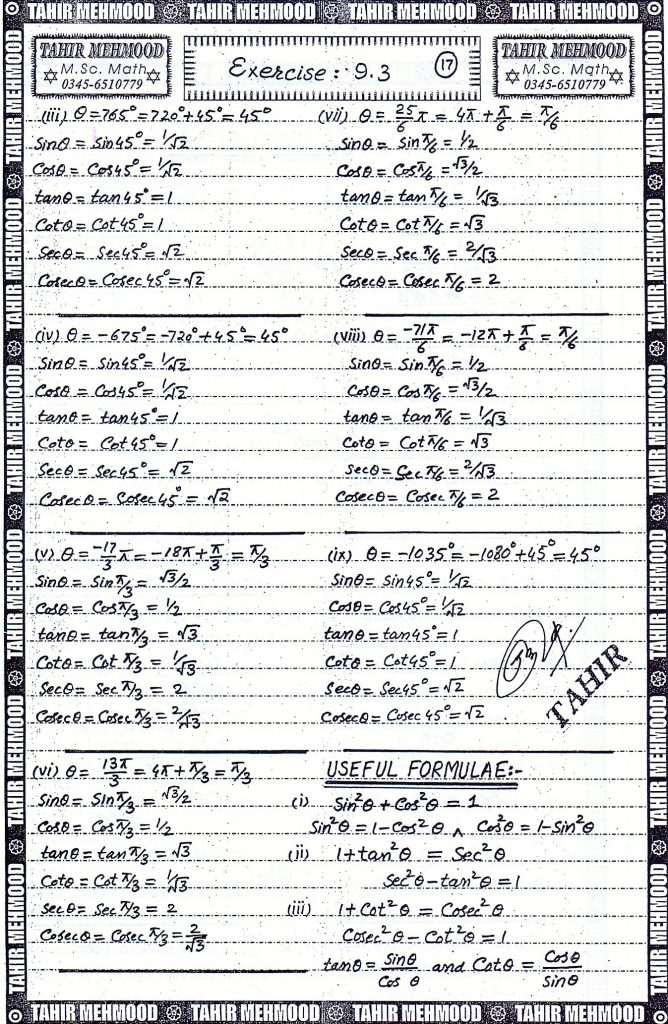 TAHIR MEHMOOD TAHIR MEHMOOD TAHIR MEHMOOD TAHIR MEHMOOD
TAHIR MEHMOOD
M.Sc. Math
0345-6510779
Exercise: 9.3
17
TAHIR MEHMOOD
M.Sc. Math
0345-6510779
(iii) θ = 765° = 720° + 45° = 45°
Sinθ = Sin45° = 1/√2
Cosθ = Cos45° = 1/√2
tanθ = tan45° = 1
Cotθ = Cot45° = 1
Secθ = Sec45° = √2
Cosecθ = Cosec45° = √2
(iv) θ = -675° = -720° + 45° = 45°
Sinθ = Sin45° = 1/√2
Cosθ = Cos45° = 1/√2
tanθ = tan45° = 1
Cotθ = Cot45° = 1
Secθ = Sec45° = √2
Cosecθ = Cosec45° = √2
(v) θ = -17/3 π = -18π + π/3 = π/3
Sinθ = Sinπ/3 = √3/2
Cosθ = Cosπ/3 = 1/2
tanθ = tanπ/3 = √3
Cotθ = Cot π/3 = 1/√3
Secθ = Sec π/3 = 2
Cosecθ = Cosec π/3 = 2/√3
(vi) θ = 13π/3 = 4π + π/3 = π/3
Sinθ = Sinπ/3 = √3/2
Cosθ = Cosπ/3 = 1/2
tanθ = tanπ/3 = √3
Cotθ = Cot π/3 = 1/√3
Secθ = Sec π/3 = 2
Cosecθ = Cosec π/3 = 2/√3
(vii) θ = 25/6 π = 4π + π/6 = π/6
Sinθ = Sinπ/6 = 1/2
Cosθ = Cosπ/6 = √3/2
tanθ = tanπ/6 = 1/√3
Cotθ = Cot π/6 = √3
Secθ = Sec π/6 = 2/√3
Cosecθ = Cosec π/6 = 2
(viii) θ = -71π/6 = -12π + π/6 = π/6
Sinθ = Sin π/6 = 1/2
Cosθ = Cosπ/6 = √3/2
tanθ = tanπ/6 = 1/√3
Cotθ = Cot π/6 = √3
Secθ = Sec π/6 = 2/√3
Cosecθ = Cosec π/6 = 2
(ix) θ = -1035° = -1080° + 45° = 45°
Sinθ = Sin45° = 1/√2
Cosθ = Cos45° = 1/√2
tanθ = tan45° = 1
Cotθ = Cot45° = 1
Secθ = Sec45° = √2
Cosecθ = Cosec 45° = √2
TAHIR
USEFUL FORMULAE:-
(i) Sin²θ + Cos²θ = 1
Sin²θ = 1 - Cos²θ ∧ Cos²θ = 1 - Sin²θ
(ii) 1 + tan²θ = Sec²θ
Sec²θ - tan²θ = 1
(iii) 1 + Cot²θ = Cosec²θ
Cosec²θ - Cot²θ = 1
tanθ = Sinθ/Cos θ and Cotθ = Cosθ/Sinθ
TAHIR MEHMOOD TAHIR MEHMOOD TAHIR MEHMOOD TAHIR MEHMOOD
TAHIR MEHMOOD TAHIR MEHMOOD TAHIR MEHMOOD TAHIR MEHMOOD TAHIR MEHMOOD TAHIR MEHMOOD
TAHIR MEHMOOD TAHIR MEHMOOD TAHIR MEHMOOD TAHIR MEHMOOD TAHIR MEHMOOD TAHIR MEHMOOD